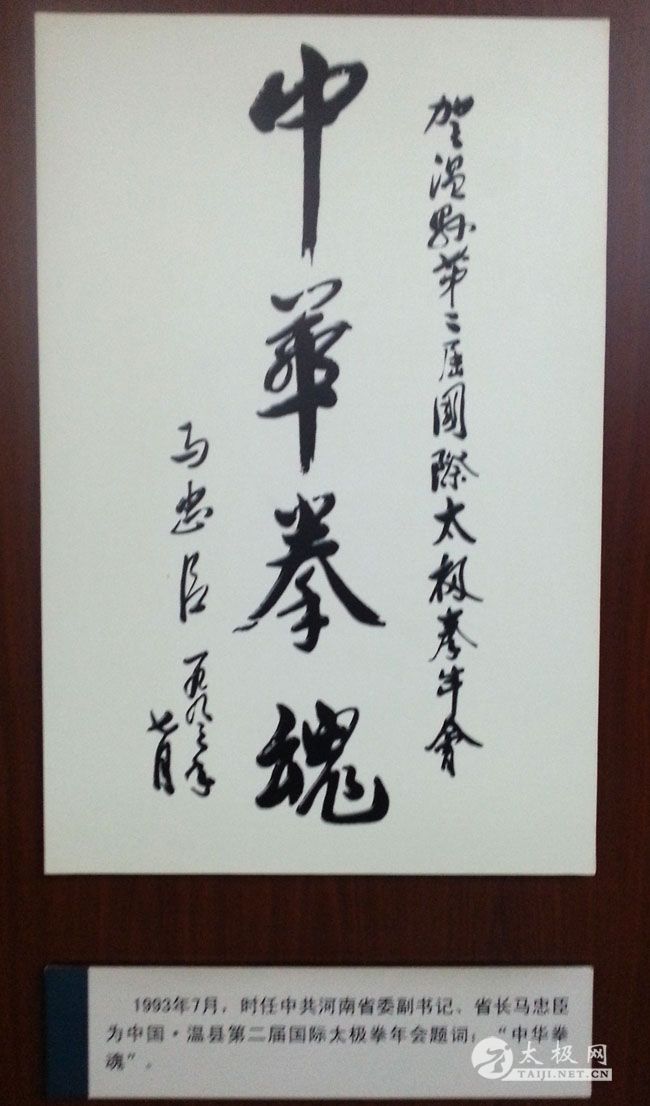 贺温縣第二届國際太极拳年會
中華拳魂
马忠臣
一九九三年
七月
1993年7月，时任中共河南省委副书记、省长马忠臣
为中国·温县第二届国际太极拳年会题词：“中华拳
魂”。
太极网
TAIJI.NET.CN